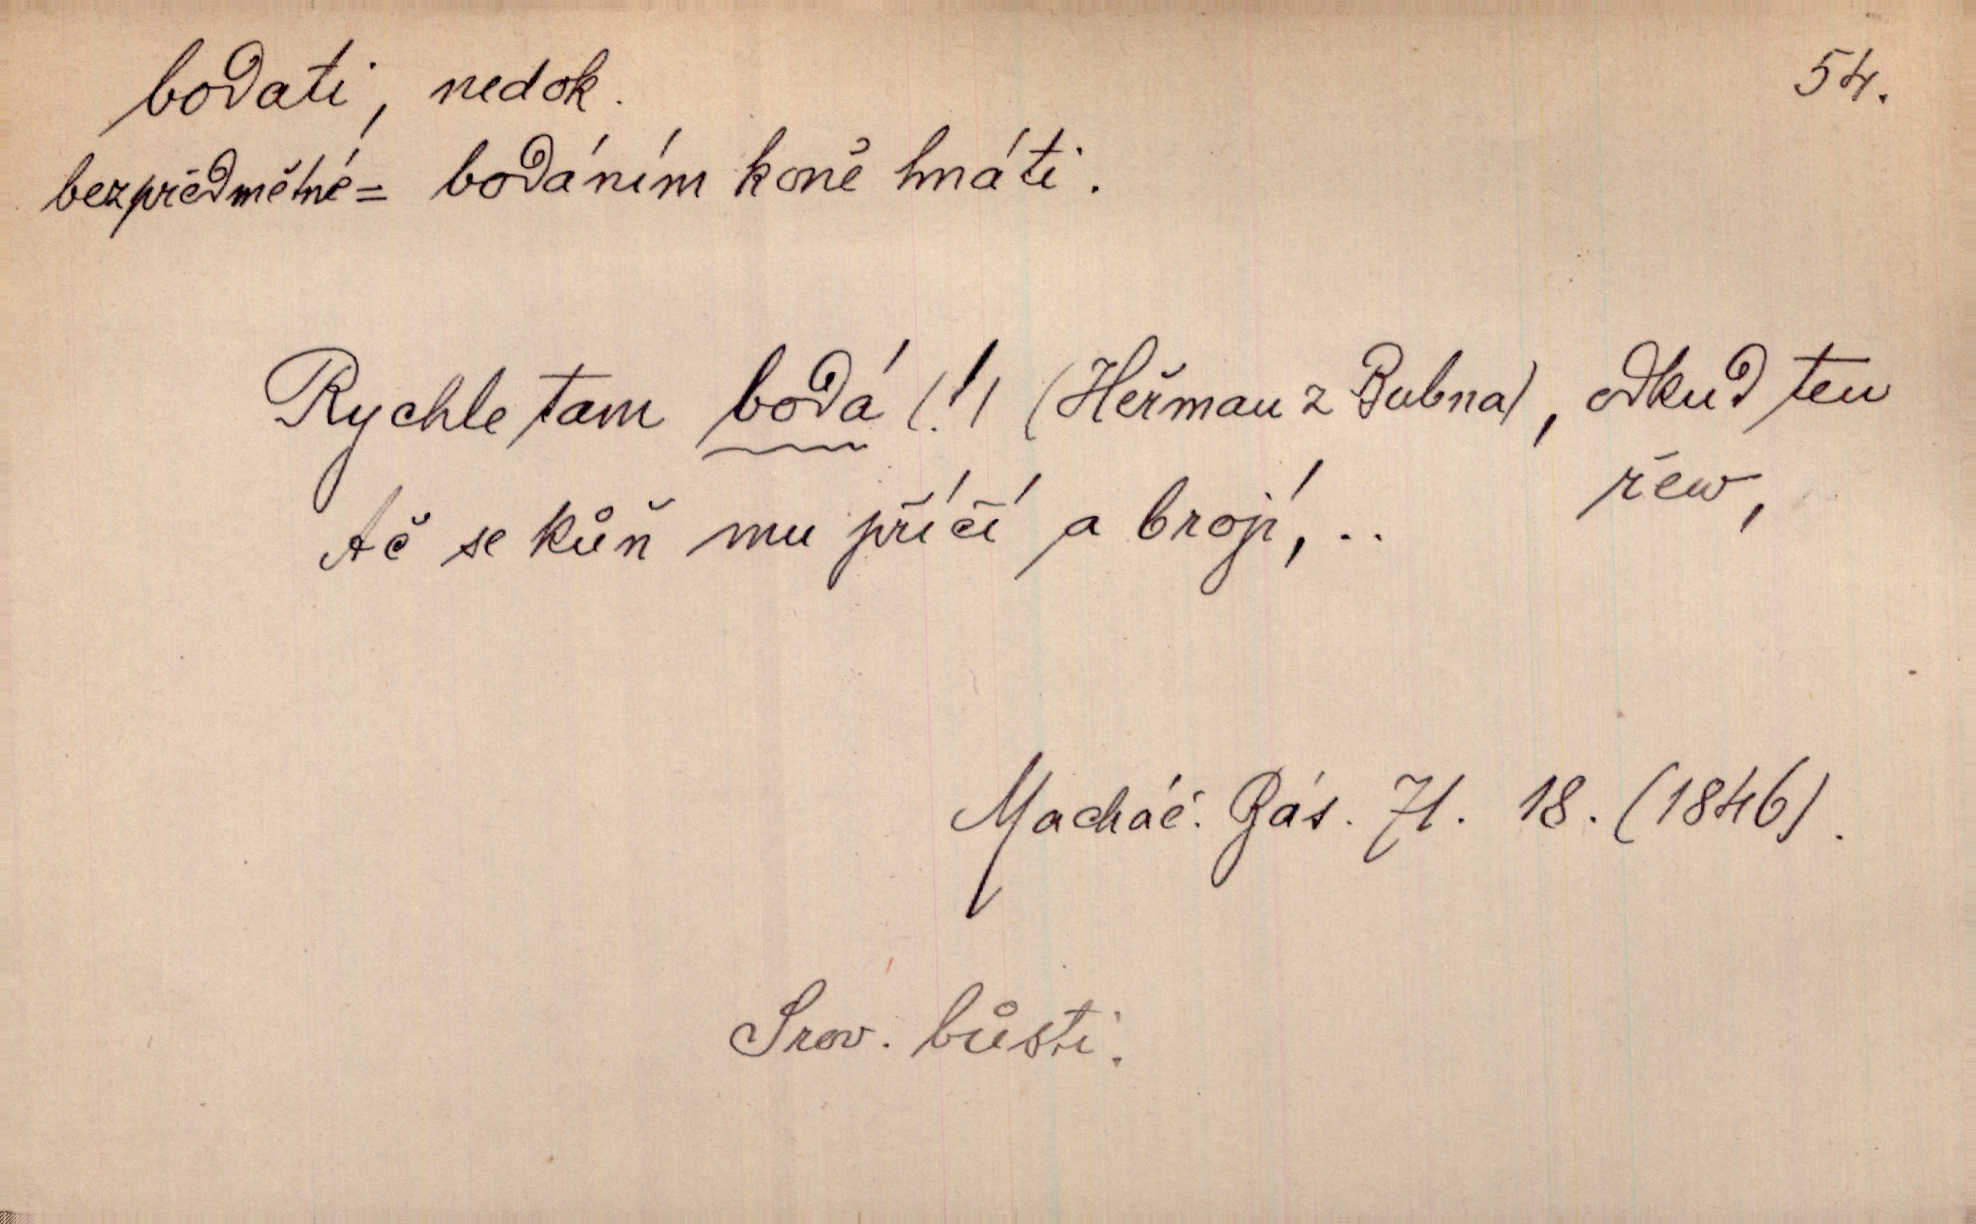 bodati, nedok. 54.
bezpředmětné = bodáním koně hnáti.
Rychle tam bodá (!) (Heřman z Bubna), odkud ten
řew,
Ač se kůň mu příčí a brojí, ..
Macháč. Bás. 71. 18. (1846).
Srov. bůsti.